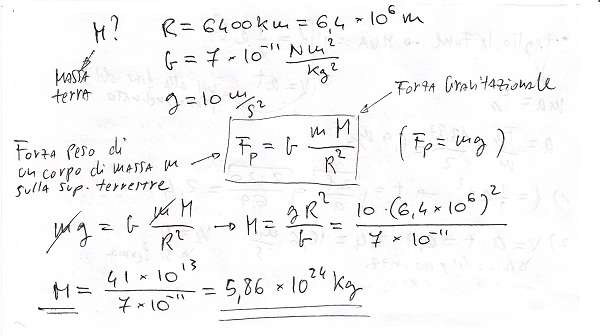 M? R = 6400 km = 6,4 × 10⁶ m
MASSA terra
G = 7 × 10⁻¹¹ Nm²/Kg²
g = 10 m/s²
Forza Gravitazionale
Forza peso di
un corpo di MASSA m
sulla sup. terrestre
Fp = G mM/R² (Fp = mg)
mg = G mM/R² → M = gR²/G = 10·(6,4 × 10⁶)²/7 × 10⁻¹¹
M = 41 × 10¹³/7 × 10⁻¹¹ = 5,86 × 10²⁴ Kg